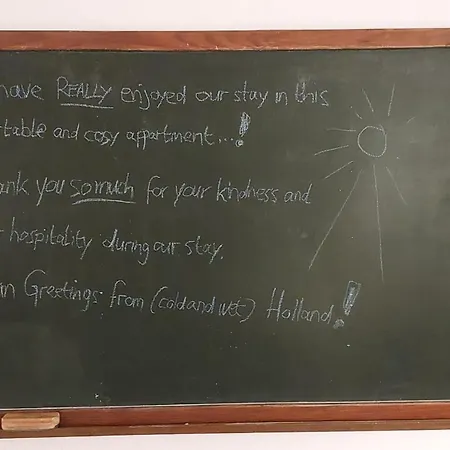 have REALLY enjoyed our stay in this
table and cosy appartment...!
ank you so much for your kindness and
hospitality during our stay.
Greetings from (cold and wet) Holland!